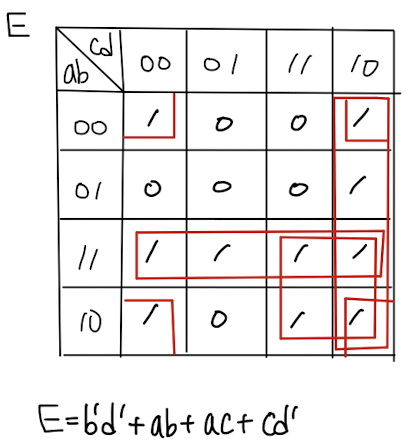 E
cd
ab 00 01 11 10
00 1 0 0 1
01 0 0 0 1
11 1 1 1 1
10 1 0 1 1
E=b'd'+ab+ac+cd'